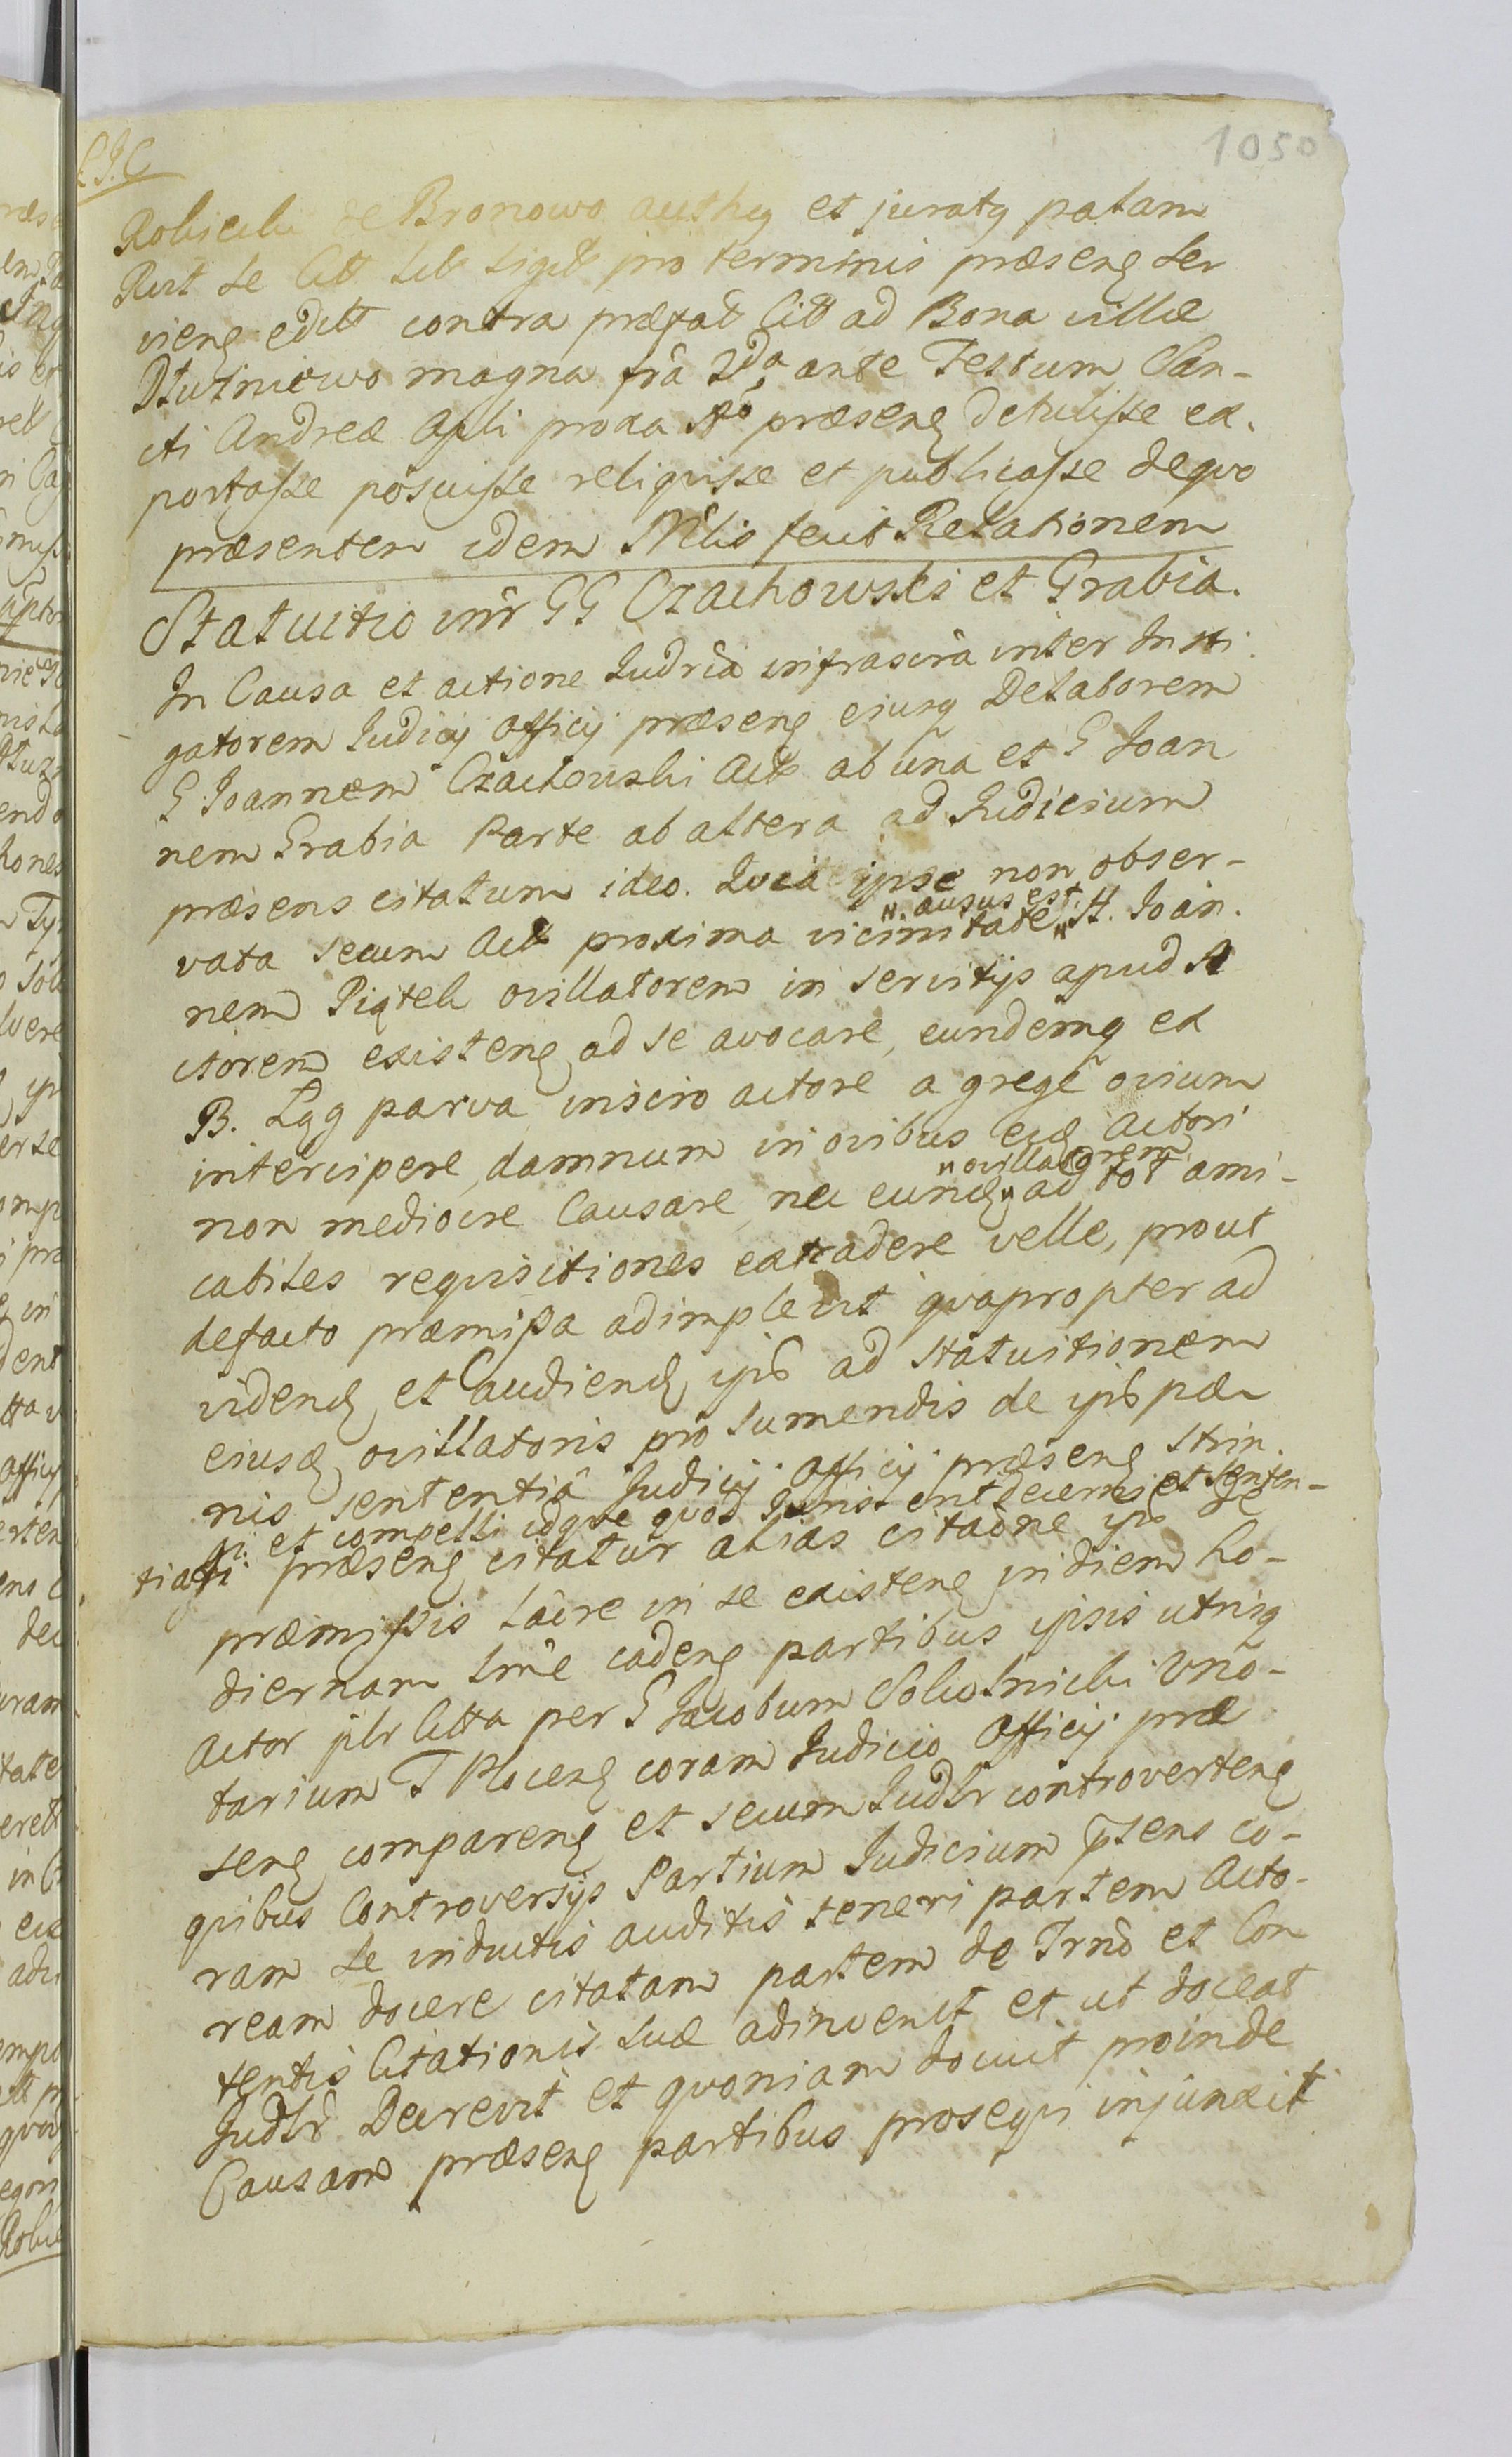 1050
Robicelu de Bronowo authq et juratq palam
Rvt se litt sub sigil pro terminis præsenę ser
vienę editt contra præfat Citt ad Bona villæ
Dłutniowo magna fra 2da ante Festum San-
cti Andreæ Apli proxa No præsenę detulisse ex.
portasse posuisse reliquisse et publicasse deqvo
præsentem idem Mlis fecit Relationem
Statuitio intr GG Czachowski et Grabia.
In Causa et actione Iudria infrascra inter Insti
gatorem Iudicij Officij præsenę eiusq Delatorem
G Joannem Czachowski Act ab una et G Joan
nem Grabia Parte ab altera ad Iudicium
præsens citatum ideo. Qvia ipse non obser-
vata secum Act proxima vicinitate " H. Joan.
". ausus est.
nem Piątek ovillatorem in servitijs apud A
ctorem existenę ad se avocare, eundemq ex
B. Łąg parva inscio actore a grege ovium
intercipere, damnum in ovibus eid Actori
non mediocre Causare, nec eundę " ad tot ami-
" ovillatorem
cabiles requisitiones extradere velle, prout
defacto præmissa adimplevit qvapropter ad
videndę et audiendę ips ad statuitionem
eiusdę ovillatoris pro sumendis de ipso pæ
nis sententia Iudicij Officij præsenę strin.
gi. et compelli idqve qvod Iuris ent decerni et senten-
tiari præsenę citatur alias citaone ips de
præmissis latre in se existenę in diem ho-
diernam smle cadenę partibus ipsis utrisq
Actor plr Citta per G Jacobum Sokolnicki Vno-
tarium T Plocenę coram Iudicio Officij præ
senę comparenę et secum Iudlr controvertenę
qvibus Controversijs Partium Iudicium psens co-
ram se inductis auditis teneri partem Acto-
ream docere citatam partem de Trno et Con
tentis Citationis suæ adinvenit et ut doceat
Iudlr Decrevit et qvoniam docuit proinde
Causam præsenę partibus proseqvi injunxit